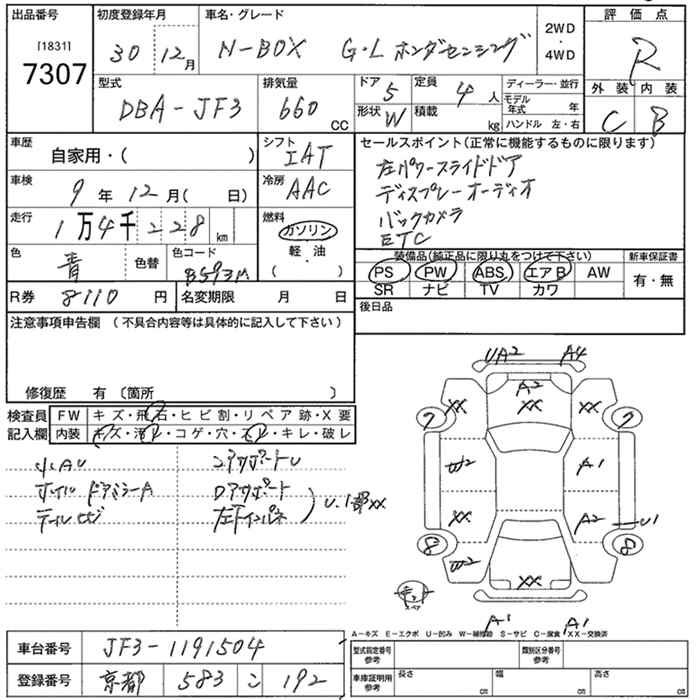 出品番号
[1831]
7307
初度登録年月
30 12月
車名・グレード
N-BOX G・L ホンダセンシング
2WD
・
4WD
評価点
R
外装 内装
C B
型式
DBA-JF3
排気量
660 CC
ドア 5
形状 W
定員 4人
積載 kg
ディーラー・並行
モデル年式 年
ハンドル 左・右
車歴
自家用・( )
シフト
IAT
セールスポイント(正常に機能するものに限ります)
左パワースライドドア
ディスプレーオーディオ
バックカメラ
ETC
車検
9年12月( 日)
冷房
AAC
走行
1万4千228km
燃料
ガソリン
軽・油
( ・ )
色
青
色替
色コード
B593M
装備品(純正品に限り丸をつけて下さい)
PS PW ABS エアB AW
SR ナビ TV カワ
新車保証書
有・無
R券 8110 円
名変期限 月 日
後日品
注意事項申告欄 (不具合内容等は具体的に記入して下さい)
修復歴 有 〔箇所 〕
検査員
記入欄
FW キズ・飛石・ヒビ割・リペア跡・X要
内装 キズ・汚レ・コゲ・穴・スレ・キレ・破レ
小AU
ホイル ドアミラーA
テールヒビ
コアサポートU
Dアサポート
左下インパネ
UA2 A4
A2
XX XX XX
7 7
W2 A1
XX A2 U1
8 8
W2
XX
スペア
A1 A1
A−キズ E−エクボ U−凹み W−補修跡 S−サビ C−腐食 XX−交換済
車台番号 JF3-1191504
登録番号 京都 583 こ 192
型式指定番号
参考
類別区分番号
参考
車庫証明用
参考
長さ cm
幅 cm
高さ cm